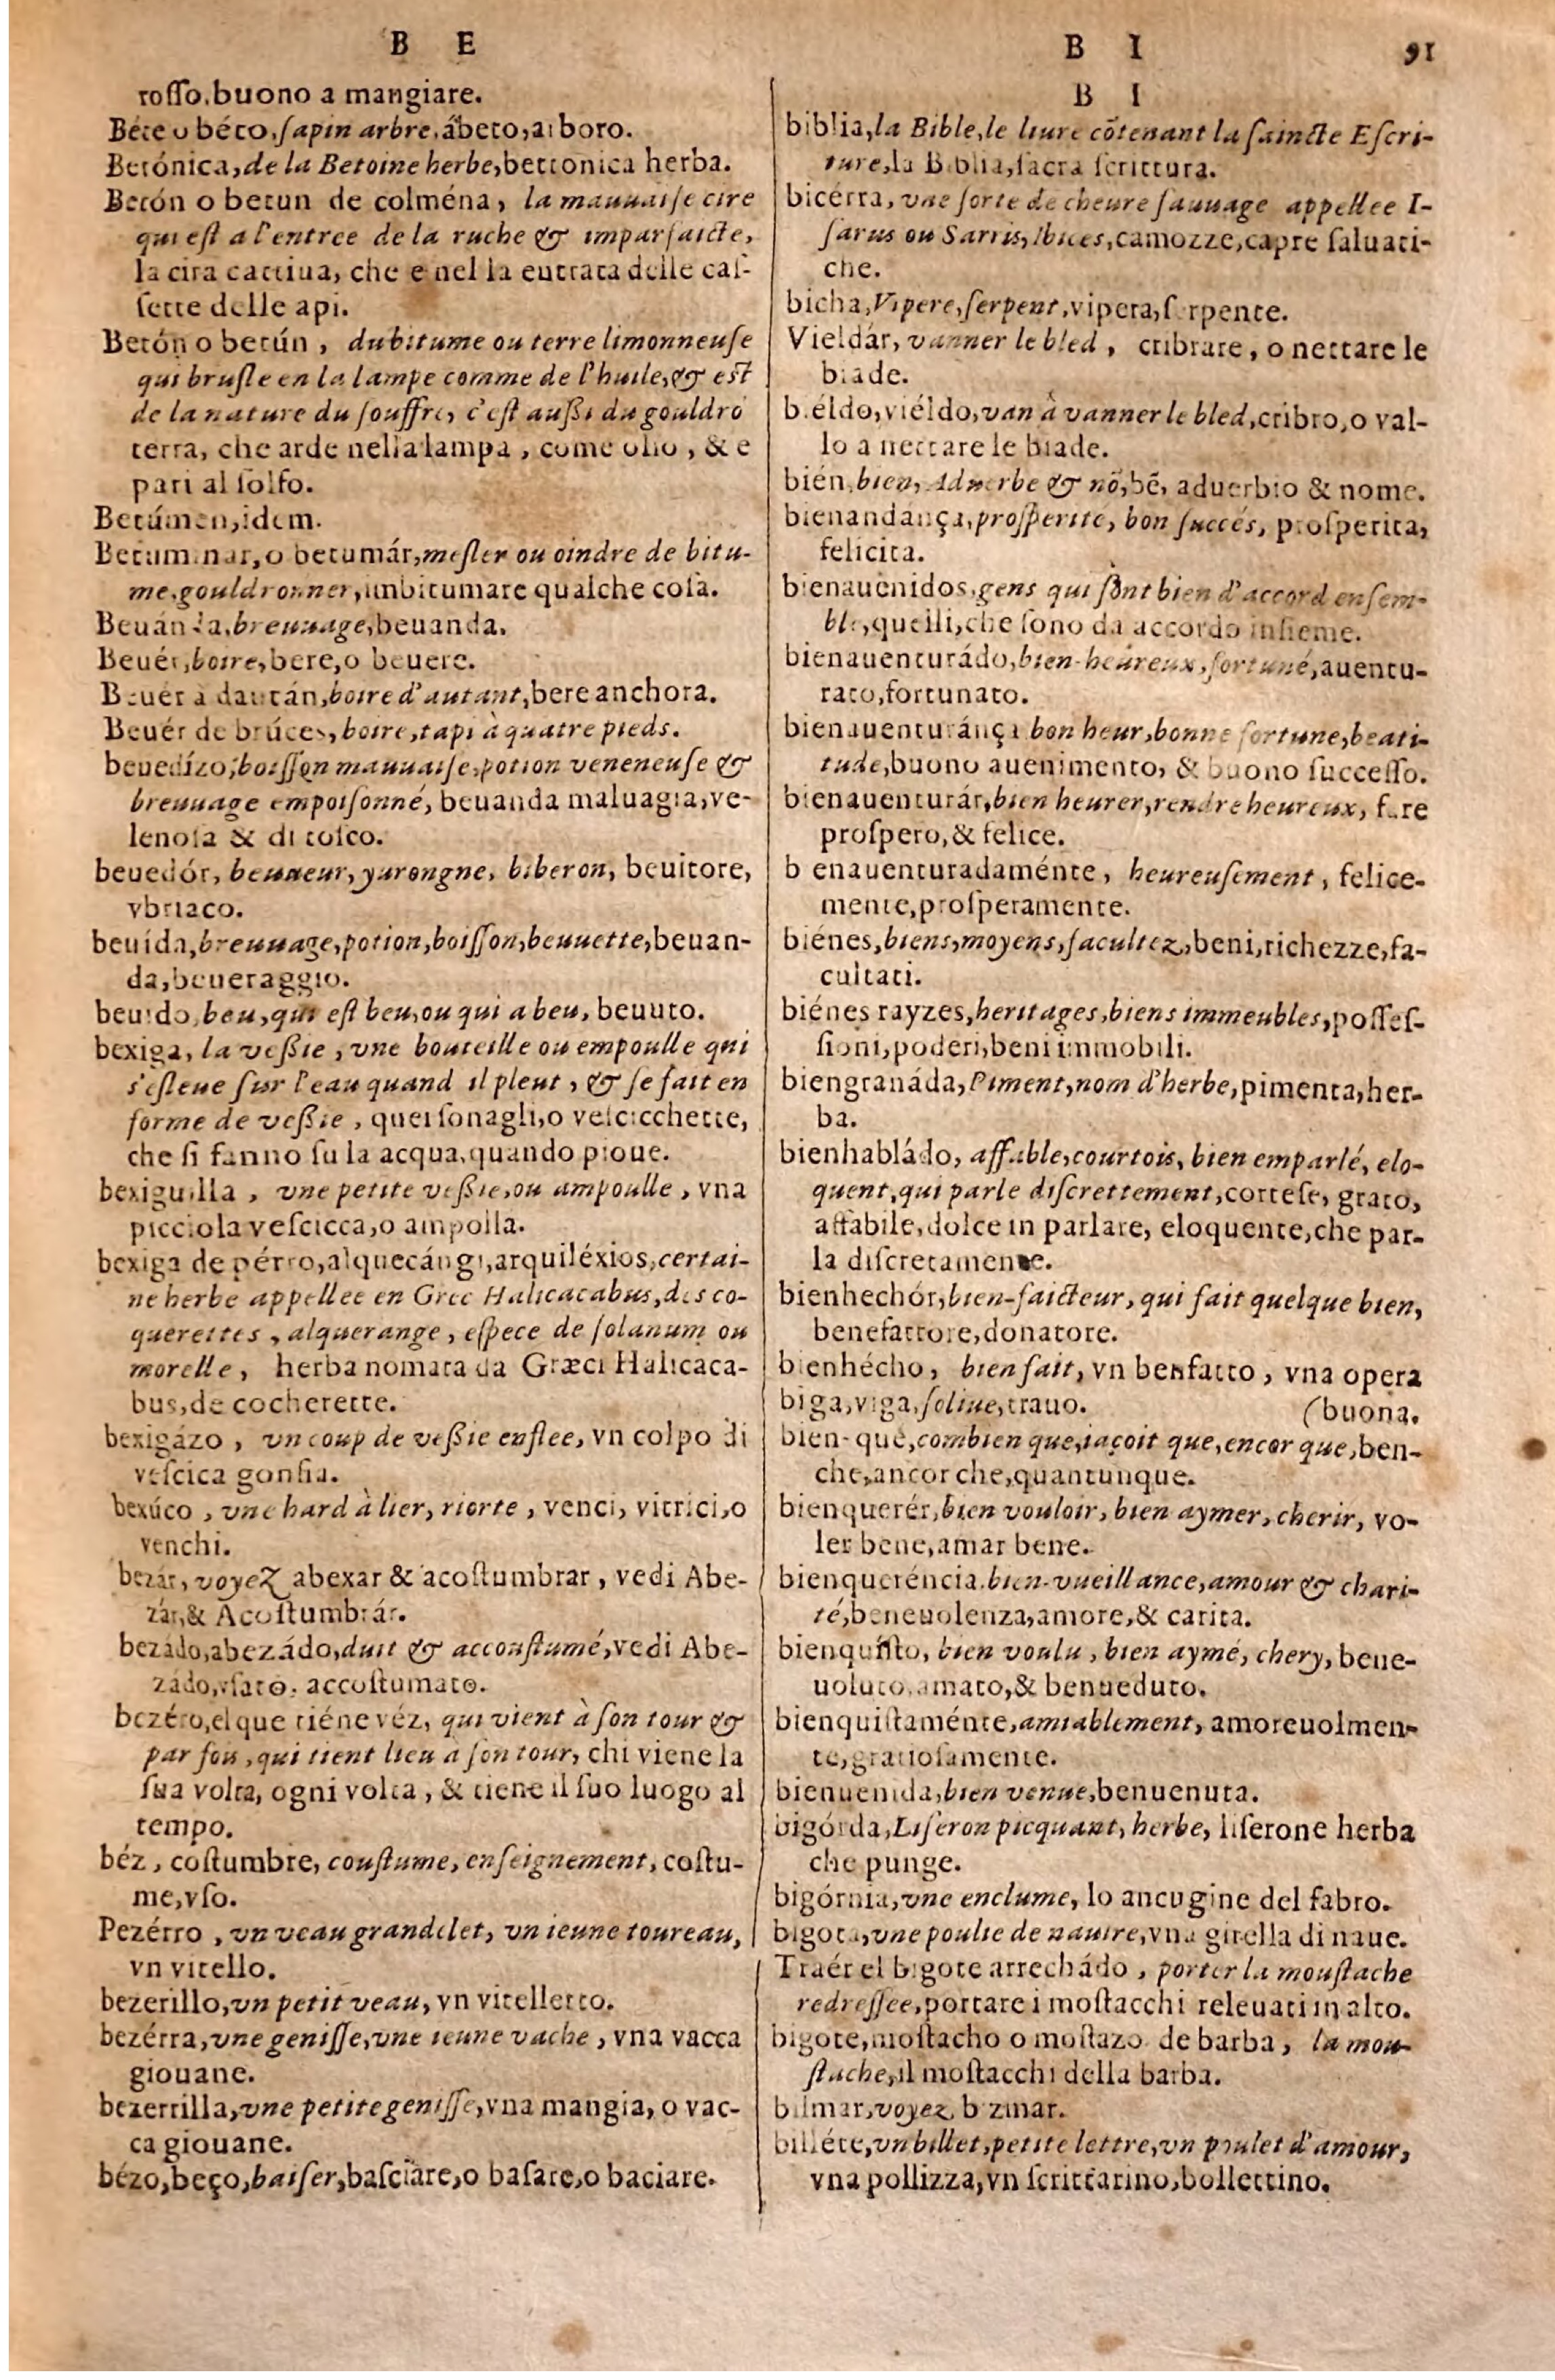 B E
rosso,buono a mangiare.
Béte o béto,sapin arbre,ábeto,arboro.
Betónica,de la Betoine herbe,bettonica herba.
Betón o betun de colména, la mauuaise cire
qui est a l'entree de la ruche & imparfaicte,
la cira cattiua, che e nel la euttata delle cas-
sette delle api.
Betón o betún, du bitume ou terre limonneuse
qui brusle en la lampe comme de l'huile,& est
de la nature du souffre, c'est aussi du gouldrō
terra, che arde nella lampa, come olio, & e
pari al solfo.
Betúmen,idem.
Betuminar,o betumár,mesler ou oindre de bitu-
me,gouldronner,imbitumare qualche cosa.
Beuánda,breuuage,beuanda.
Beuér,boire,bere,o beuere.
Beuér à daután,boire d'autant,bere anchora.
Beuér de brúces,boire,tapi à quatre pieds.
beuedízo,boisson mauuaise,potion veneneuse &
breuuage empoisonné, beuanda maluagia,ve-
lenosa & di tosco.
beuedór, beuueur, yurongne, biberon, beuitore,
vbriaco.
beuída,breuuage,potion,boisson,beuuette,beuan-
da,beueraggio.
beuido,beu,qui est beu,ou qui a beu, beuuto.
bexiga, la vessie, vne bouteille ou empoulle qui
s'esleue sur l'eau quand il pleut, & se fait en
forme de vessie, quei sonagli,o vescicchette,
che si fanno su la acqua,quando pioue.
bexiguilla, vne petite vessie,ou ampoulle, vna
picciola vescicca,o ampolla.
bexiga de pérro,alquecángi,arquiléxios,certai-
ne herbe appellee en Grec Halicacabus,des co-
querettes, alquerange, espece de solanum ou
morelle, herba nomata da Græci Halicaca-
bus,de cocherette.
bexigázo, vn coup de vessie enflee, vn colpo di
vescica gonfia.
bexúco, vne hard à lier, riorte, venci, vitrici,o
venchi.
bezár, voyez abexar & acostumbrar, vedi Abe-
zár,& Acostumbrár.
bezádo,abezádo,duit & accoustumé,vedi Abe-
zádo,vsato, accostumato.
bezéro,el que tiéne véz, qui vient à son tour &
par fou, qui tient lieu à son tour, chi viene la
sua volta, ogni volta, & tiene il suo luogo al
tempo.
béz, costumbre, coustume, enseignement, costu-
me,vso.
Pezérro, vn veau grandelet, vn ieune toureau,
vn vitello.
bezerillo,vn petit veau, vn vitelletto.
bezérra,vne genisse,vne ieune vache, vna vacca
giouane.
bezerrilla,vne petite genisse,vna mangia, o vac-
ca giouane.
bézo,beço,baiser,basciare,o basare,o baciare.
B I 91
B I
biblia,la Bible,le liure cōtenant la saincte Escri-
ture,la Biblia,sacra scrittura.
bicérra, vne sorte de cheure sauuage appellee I-
sarus ou Sarris,Ibices,camozze,capre saluati-
che.
bicha,Vipere,serpent,vipera,serpente.
Vieldár, vanner le bled, cribrare, o nettare le
biade.
biéldo,viéldo,van à vanner le bled,cribro,o val-
lo a nettare le biade.
bién,bien, Aduerbe & nō,bē, aduerbio & nome.
bienandánça,prosperité, bon succés, prosperita,
felicita.
bienauenidos,gens qui sònt bien d'accord ensem-
ble,quelli,che sono da accordo insieme.
bienauenturádo,bien-heureux,fortuné,auentu-
rato,fortunato.
bienauenturánça bon heur,bonne fortune,beati-
tude,buono auenimento, & buono successo.
bienauenturár,bien heurer,rendre heureux, fare
prospero,& felice.
bienauenturadaménte, heureusement, felice-
mente,prosperamente.
biénes,biens,moyens,facultez,beni,richezze,fa-
cultati.
biénes rayzes,heritages,biens immeubles,posses-
sioni,poderi,beni immobili.
biengranáda,Piment,nom d'herbe,pimenta,her-
ba.
bienhabládo, affable,courtois, bien emparlé, elo-
quent,qui parle discrettement,cortese, grato,
affabile,dolce in parlare, eloquente,che par-
la discretamente.
bienhechór,bien-faicteur, qui fait quelque bien,
benefattore,donatore.
bienhécho, bien fait, vn benfatto, vna opera
biga,viga,soliue,trauo. (buona.
bien-què,combien que,iaçoit que,encor que,ben-
che,ancor che,quantunque.
bienquerér,bien vouloir, bien aymer, cherir, vo-
ler bene,amar bene.
bienqueréncia,bien-vueillance,amour & chari-
té,beneuolenza,amore,& carita.
bienquisto, bien voulu, bien aymé, chery, bene-
uoluto,amato,& benueduto.
bienquistaménte,amiablement, amoreuolmen-
te,gratiosamente.
bienuenida,bien venue,benuenuta.
bigórda,Liseron picquant, herbe, liserone herba
che punge.
bigórnia,vne enclume, lo ancugine del fabro.
bigota,vne poulie de nauire,vna girella di naue.
Traér el bigote arrechádo, porter la moustache
redressee,portare i mostacchi releuati in alto.
bigote,mostacho o mostazo de barba, la mou-
stache,il mostacchi della barba.
bilmar,voyez bizmar.
billéte,vn billet,petite lettre,vn poulet d'amour,
vna pollizza,vn scrittarino,bollettino.